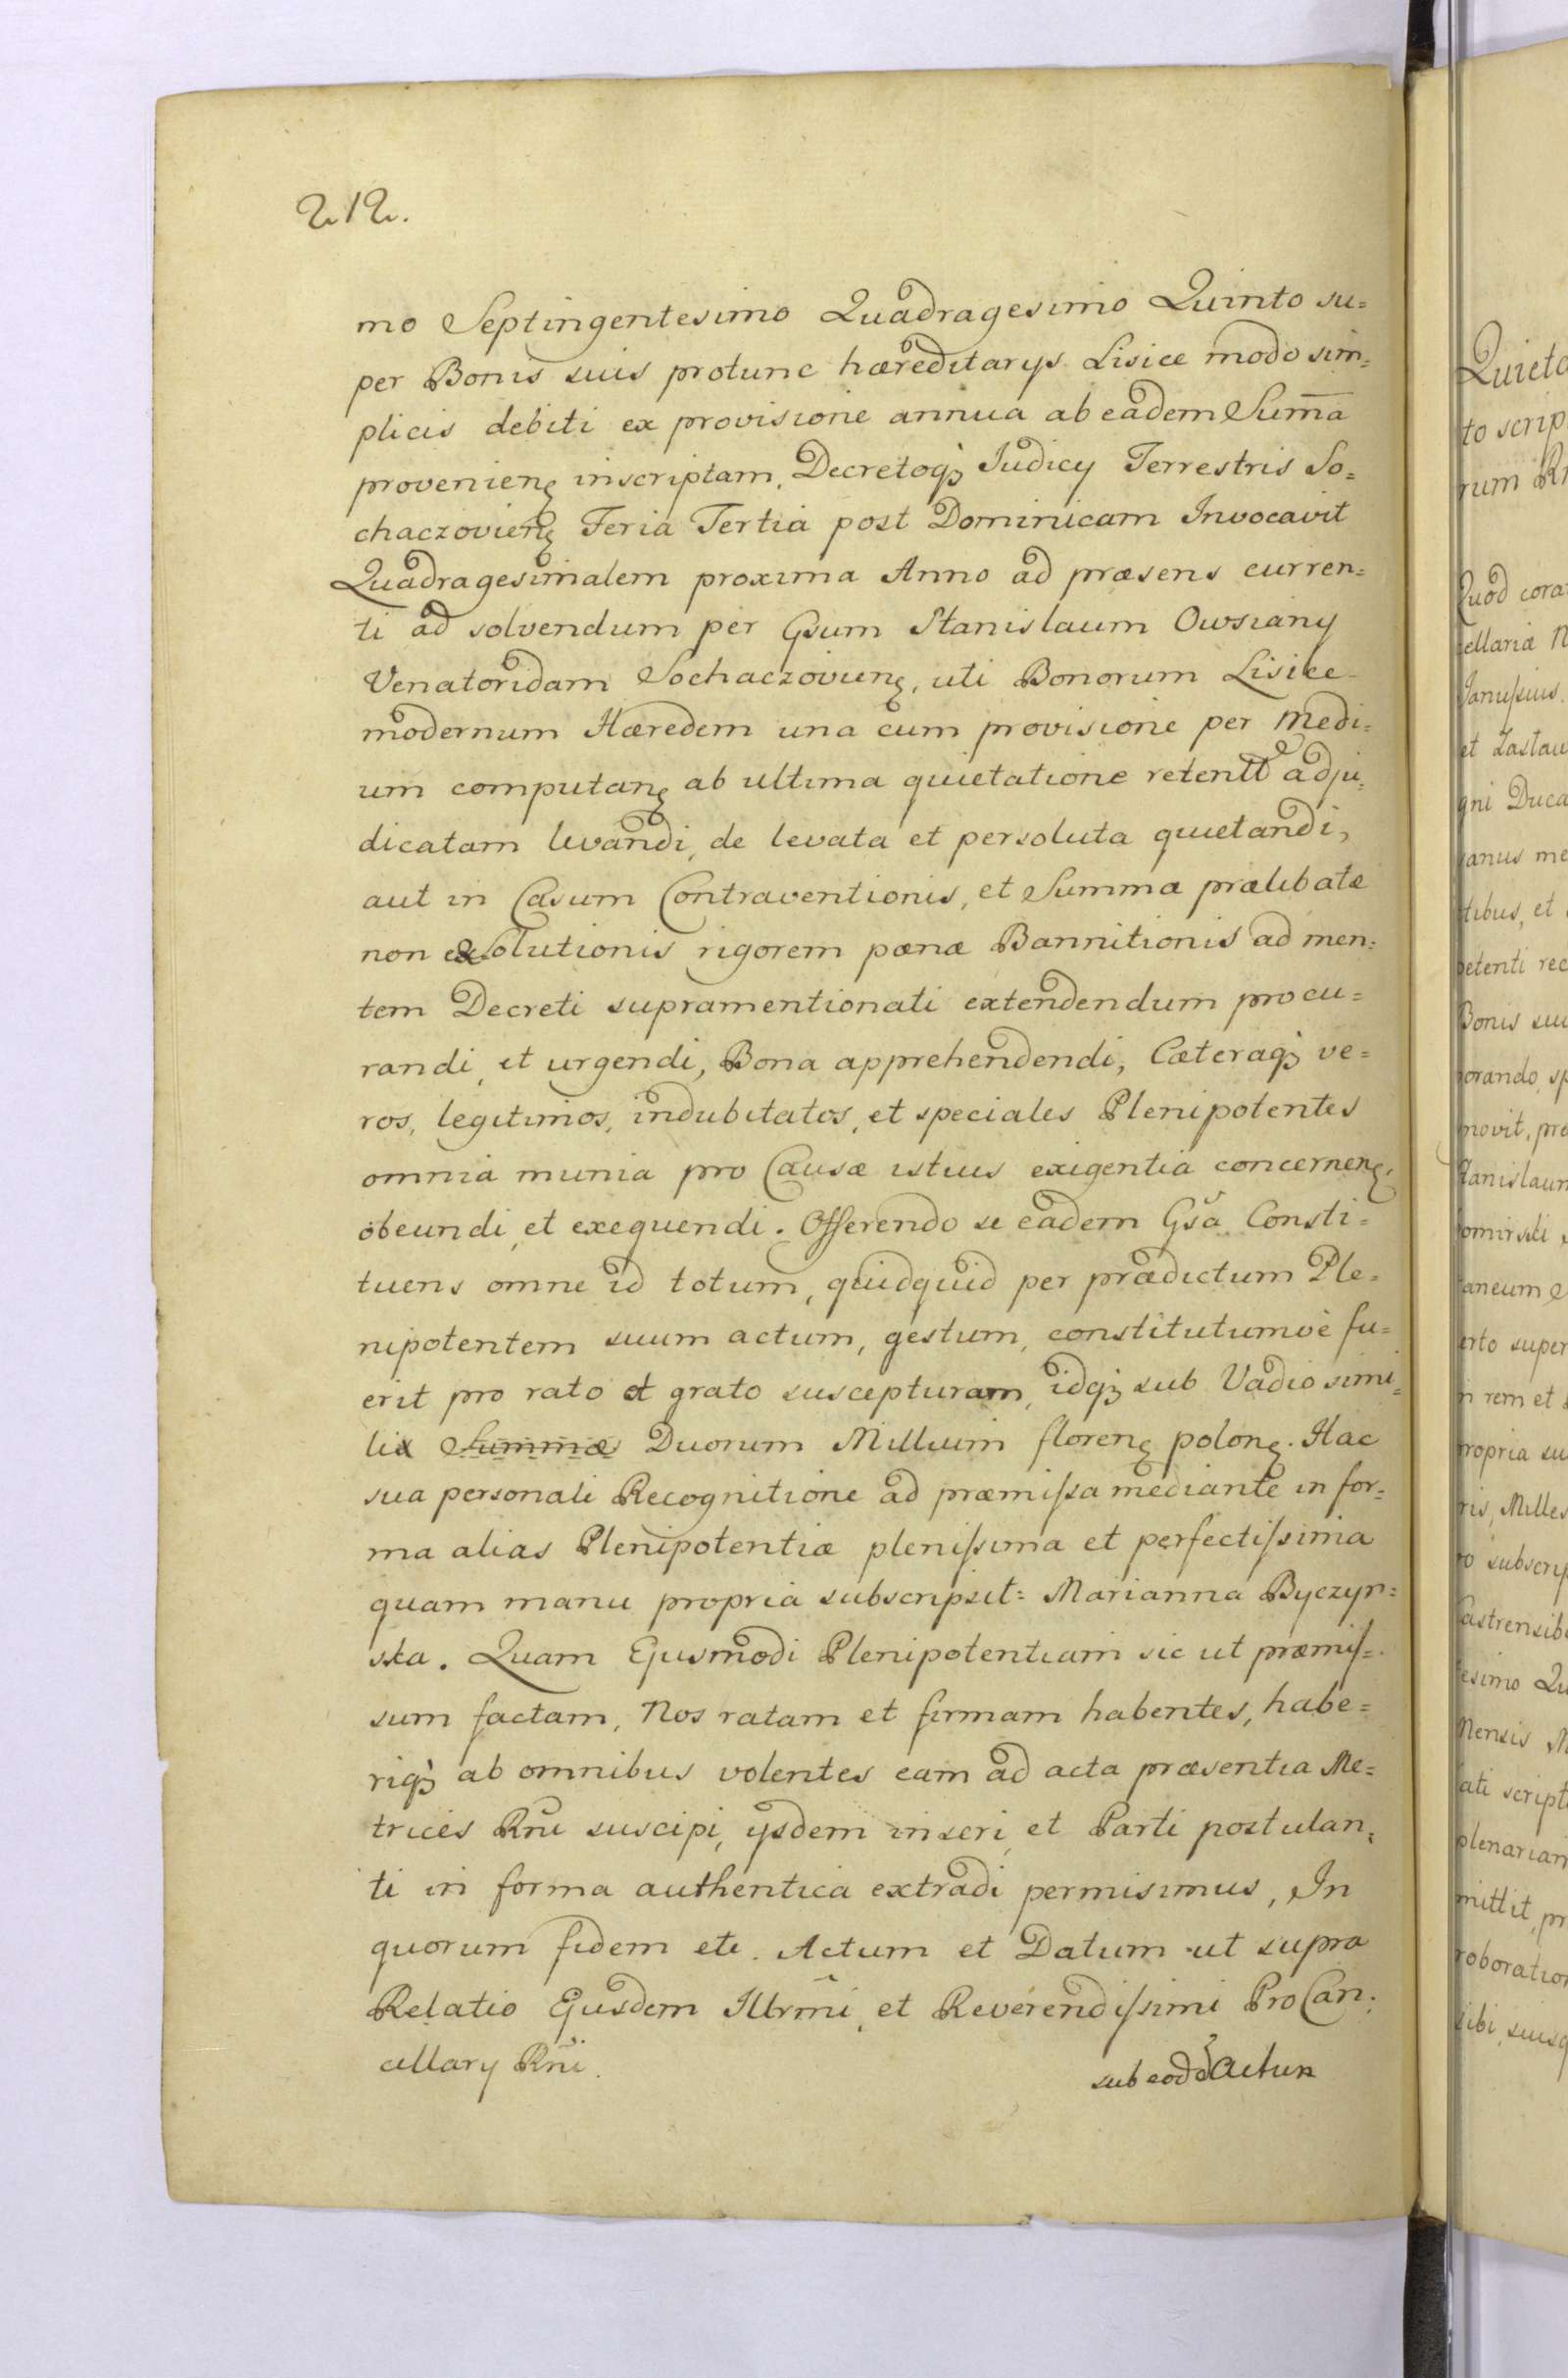 212.
mo Septingentesimo Quadragesimo Quinto su=
per Bonis suis protunc hæreditarys Lisice modo sim=
plicis debiti ex provisione annua ab eadem Sum̄a
provenienȩ inscriptam, Decretoqȝ Judicy Terrestris So=
chaczovienȩ Feria Tertia post Dominicam Invocavit
Quadragesimalem proxima Anno ad præsens curren=
ti ad solvendum per Gsum Stanislaum Owsiany
Venatoridam Sochaczovienȩ, uti Bonorum Lisice
modernum Hæredem una cum provisione per Medi=
um computanȩ ab ultima quietatione retentt adju=
dicatam levandi, de levata et persoluta quietandi,
aut in Casum Contraventionis, et Summæ prælibatæ
non exsolutionis rigorem pœnæ Bannitionis ad men=
tem Decreti supramentionati extendendum procu=
randi, et urgendi, Bona apprehendendi, Cæteraqȝ ve=
ros, legitimos, indubitatos, et speciales Plenipotentes
omnia munia pro Causæ istius exigentia concernenȩ,
obeundi, et exequendi. Offerendo se eadem Gsa Consti=
tuens omne id totum, quidquid per prædictum Ple=
nipotentem suum actum, gestum, constitutumvè fu=
erit pro rato et grato suscepturam, idqȝ sub Vadio simi=
lix Summæ Duorum Millium florenȩ polonȩ. Hac
sua personali Recognitione ad præmissa mediante in for=
ma alias Plenipotentiæ plenissima et perfectissima
quam manu propria subscripsit: Marianna Byczyn=
ska. Quam Ejusmodi Plenipotentiam sic ut præmis=
sum factam, Nos ratam et firmam habentes, habe=
riqȝ ab omnibus volentes eam ad acta præsentia Me=
trices Rni suscipi, ysdem inseri, et Parti postulan=
ti in forma authentica extradi permisimus, In
quorum fidem etc. Actum et Datum ut supra
Relatio Ejusdem Illrmi, et Reverendissimi ProCan=
cellary Rni.
sub eod Actum
Quieta
to scrip
rum
Quod cora
cellariæ
et Zastaw
gni Duca
tibus, et
petenti rec
Bonis sui
orando, sp
movit, pro
Stanislaum
taneum
erto super
n rem et
propria su
ris, Milles
ro subscrip
Castrensib
esimo Qu
Mensis M
ati script
plenariam
mittit, pr
roboration
sibi, suisq